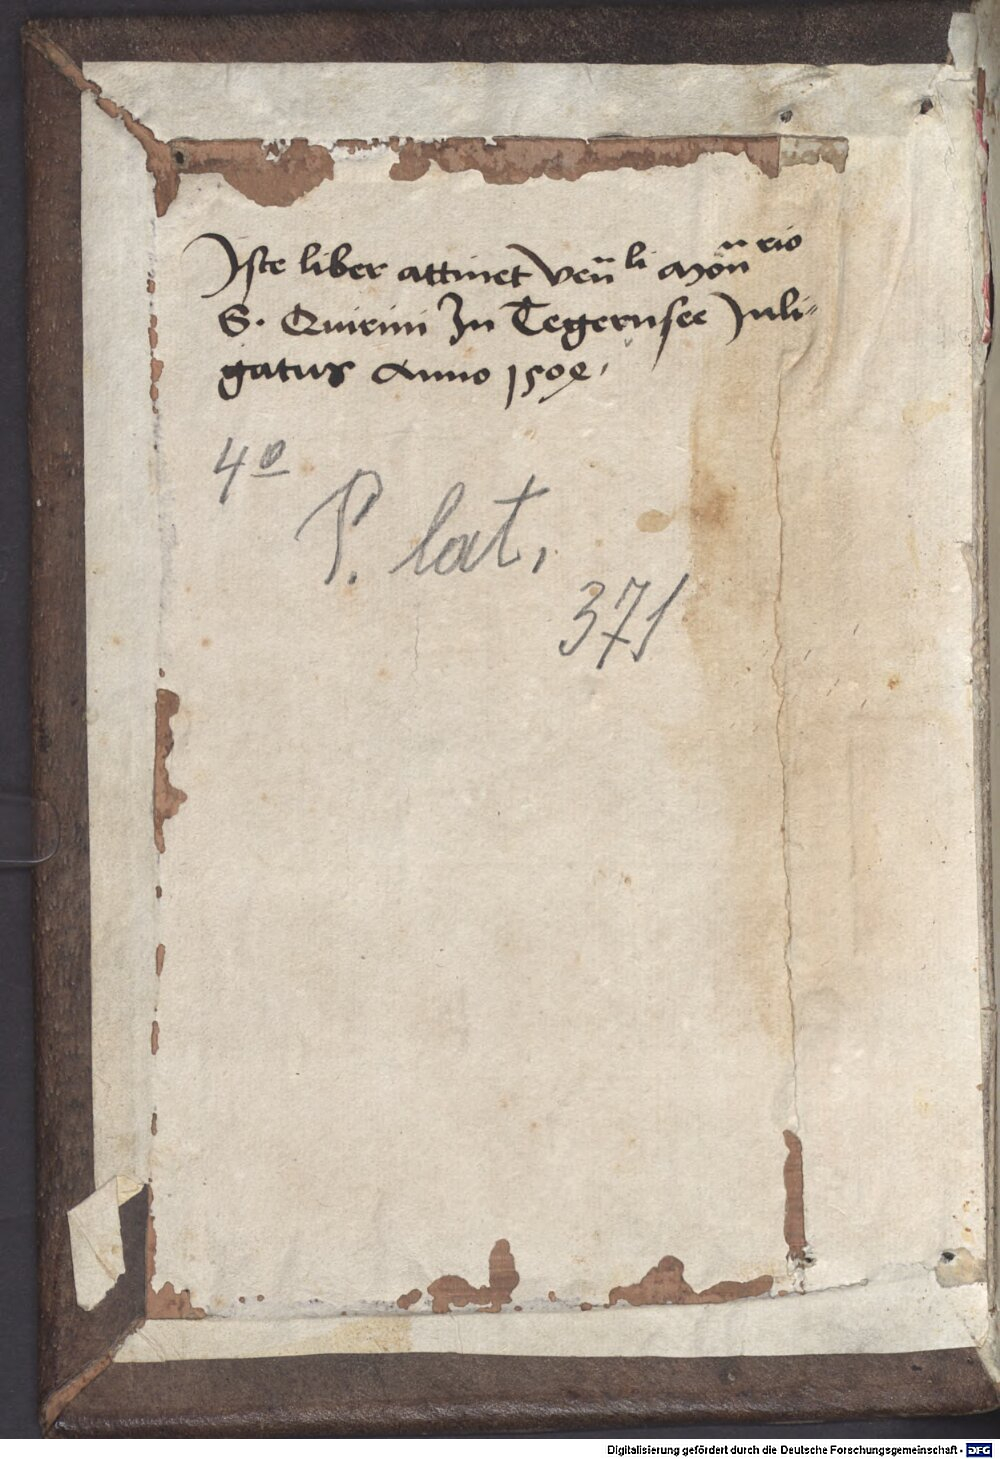 Iste liber attinet Ven̄li Mōn̄rio
S. Quirini In Tegernsee Inli-
gatus Anno 150
4º
P. lat.
371
Digitalisierung gefördert durch die Deutsche Forschungsgemeinschaft - DFG